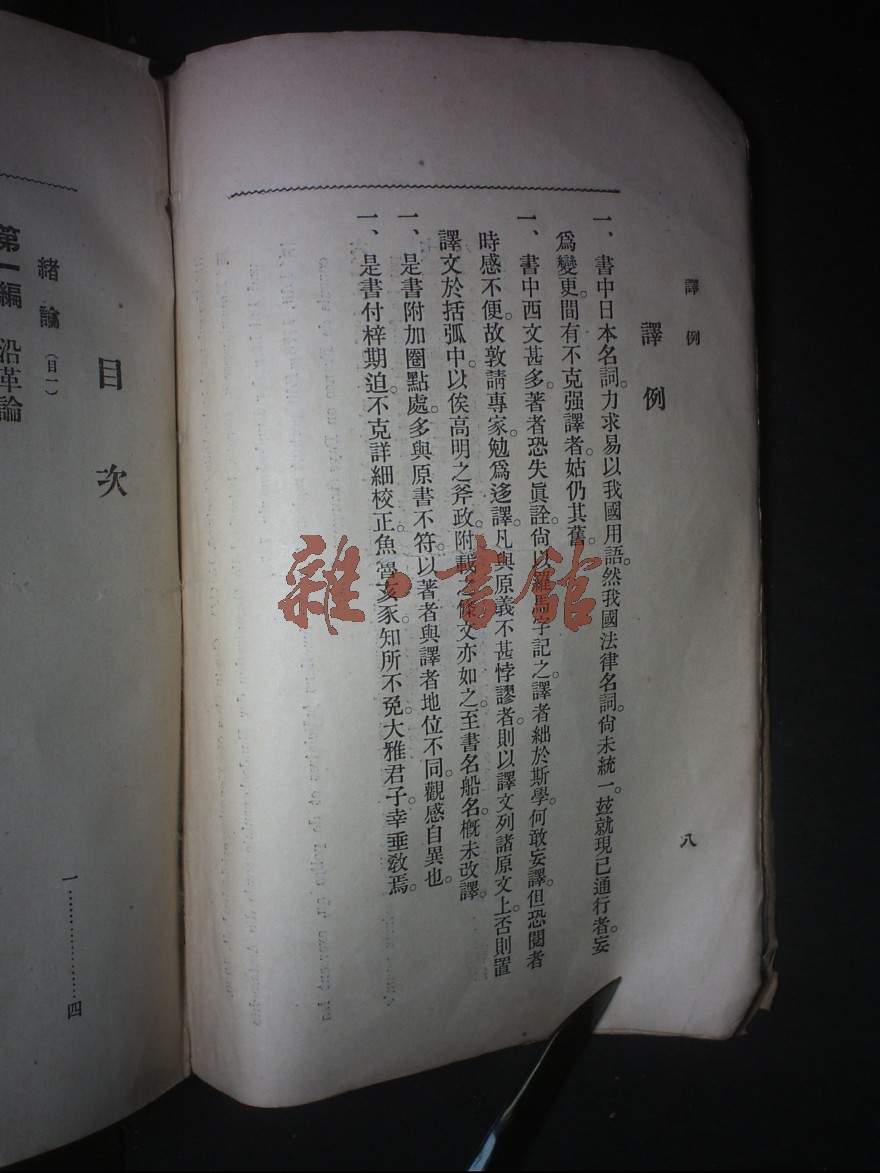 譯例
八
譯例
一、書中日本名詞。力求易以我國用語。然我國法律名詞。尙未統一。玆就現已通行者。妄
爲變更。間有不克强譯者。姑仍其舊。
一、書中西文甚多。著者恐失眞詮。尙以羅馬字記之。譯者絀於斯學。何敢妄譯。但恐閱者
時感不便。故敦請專家。勉爲迻譯。凡與原義不甚悖謬者。則以譯文列諸原文上。否則置
譯文於括弧中。以俟高明之斧政。附載之條文亦如之。至書名船名。槪未改譯。
一、是書附加圈點處。多與原書不符。以著者與譯者地位不同。觀感自異也。
一、是書付梓期迫。不克詳細校正。魚魯亥豕。知所不免。大雅君子。幸垂敎焉。
目次
緖論(目一)
一………………四
第一編 沿革論
雜·書館